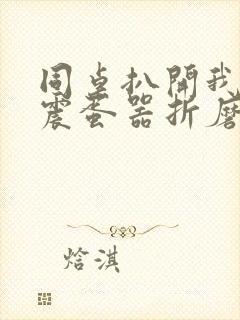 同桌扒開我
震蛋器折磨
焓淇